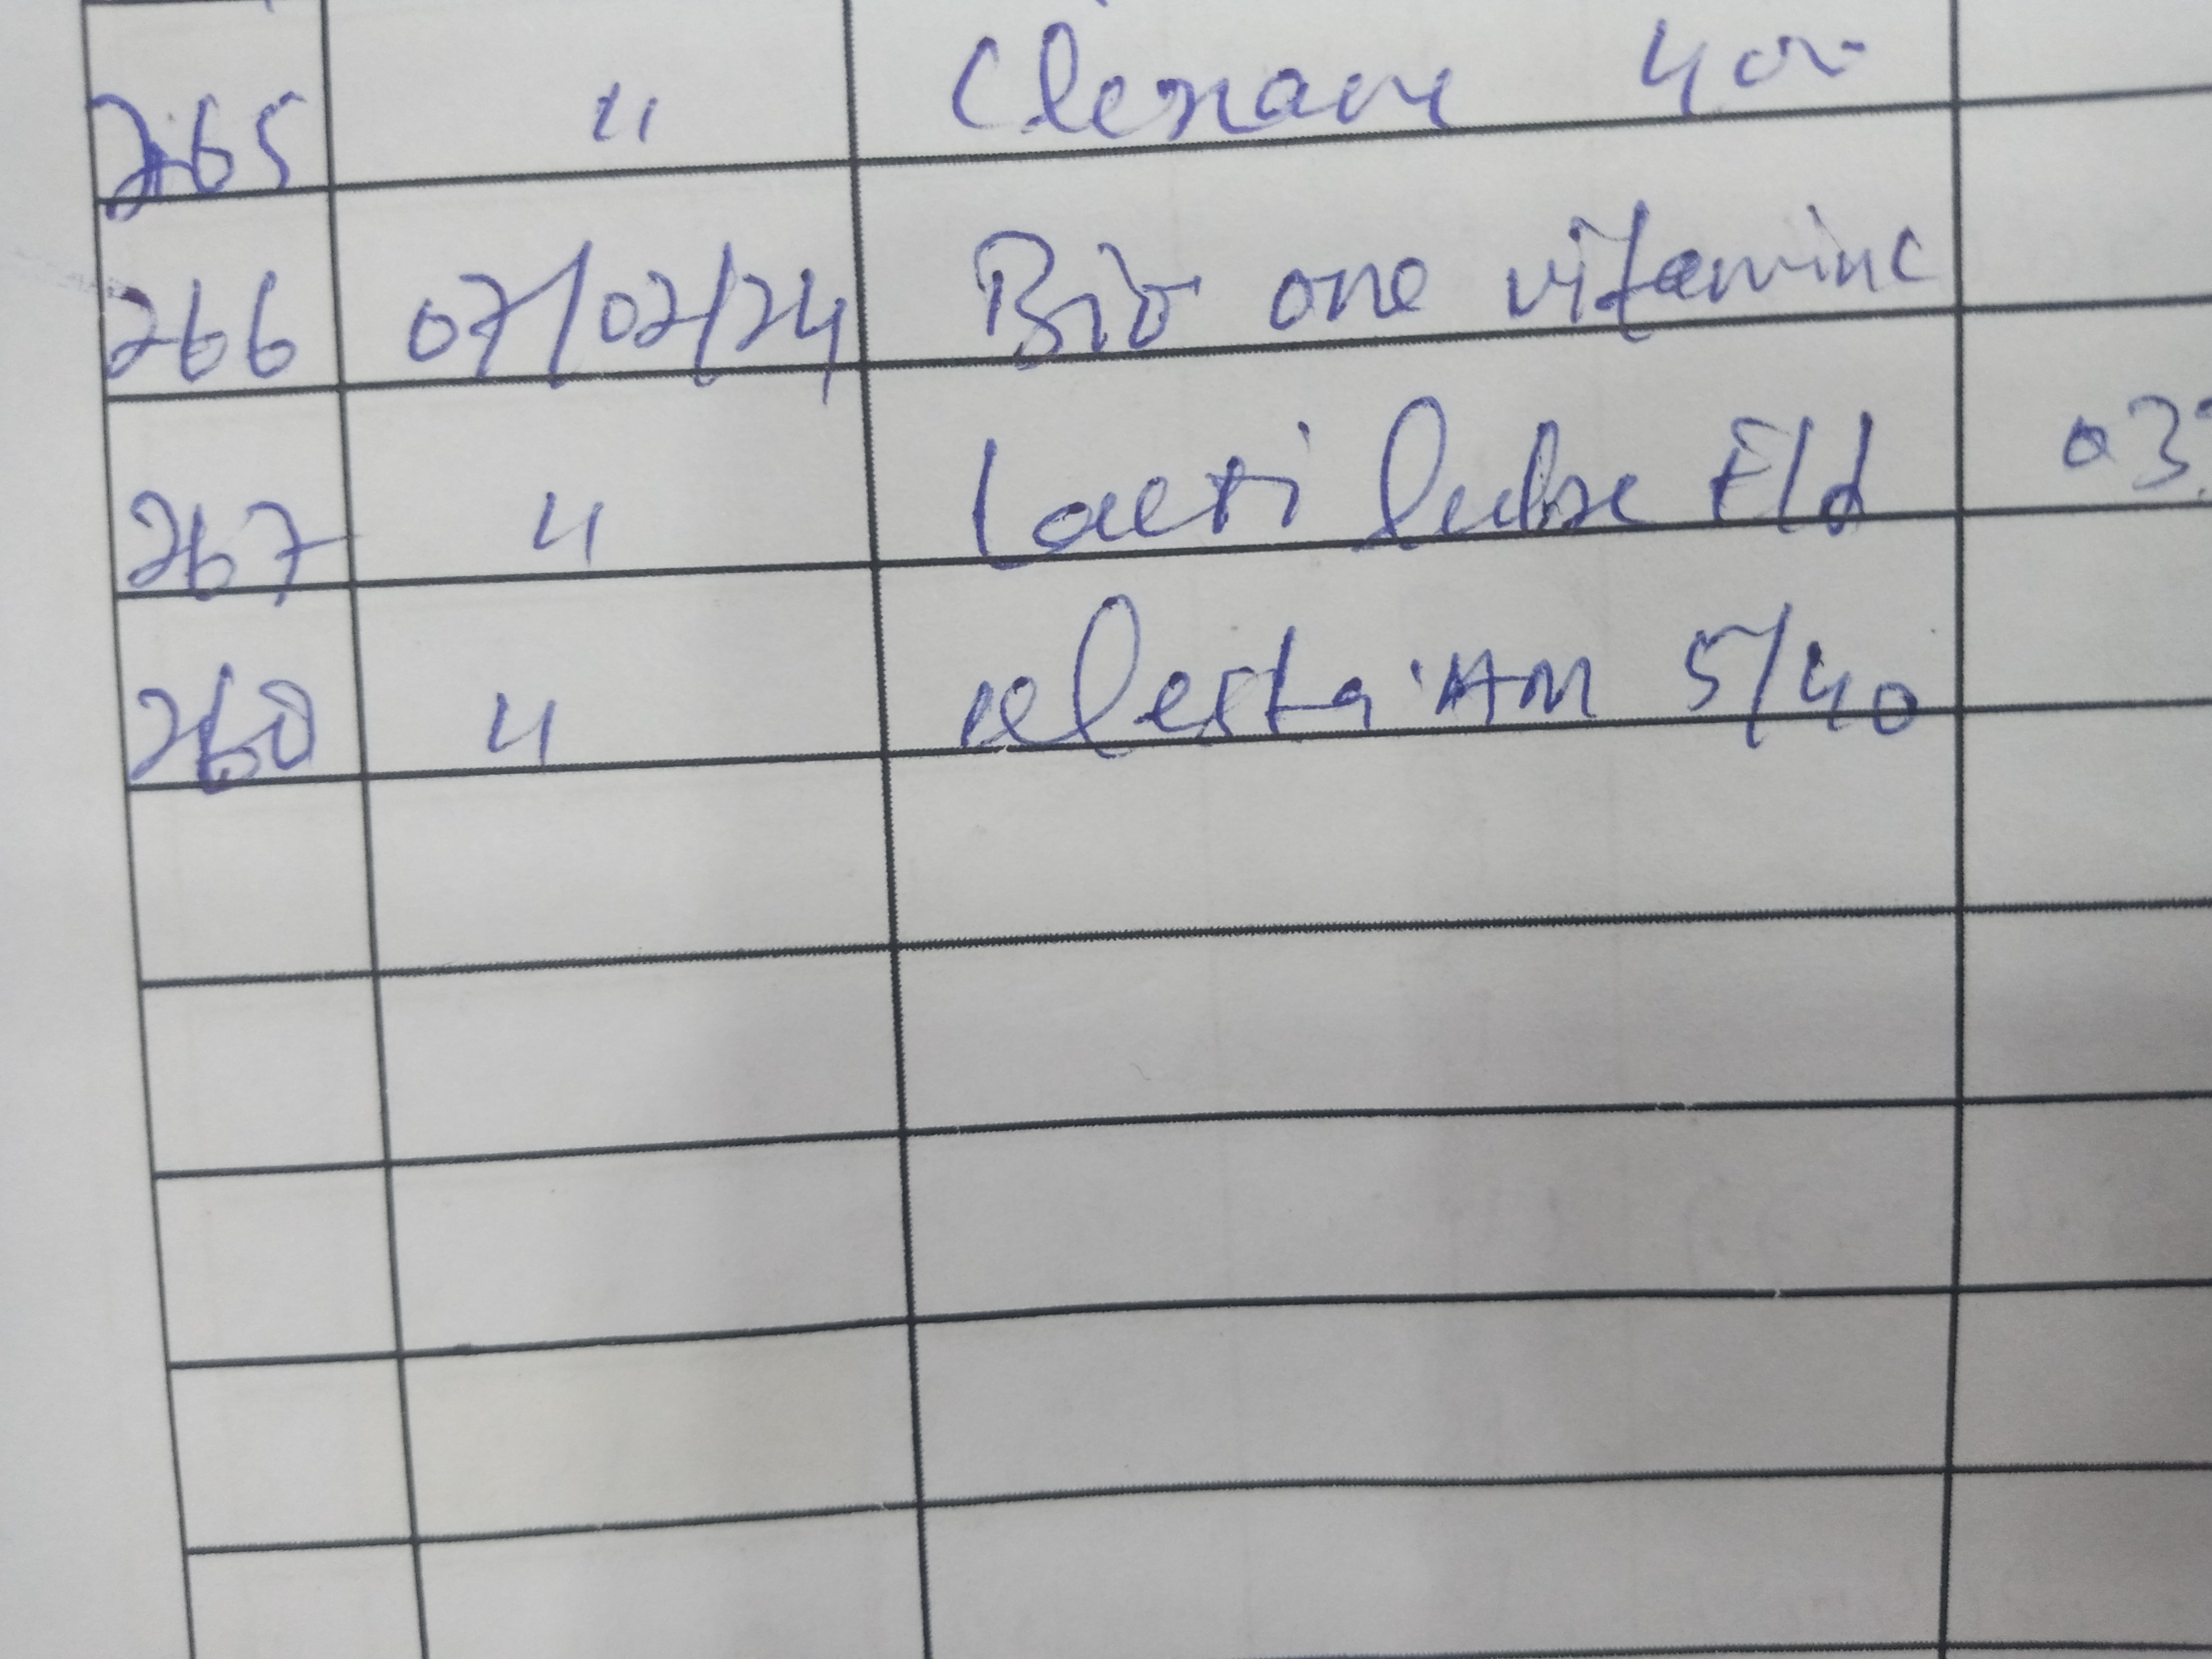 265 " Clenave 400
266 07/02/24 Bio one vitamin C
267 " Lacti lube E/d 03
268 " olesta AM 5/40